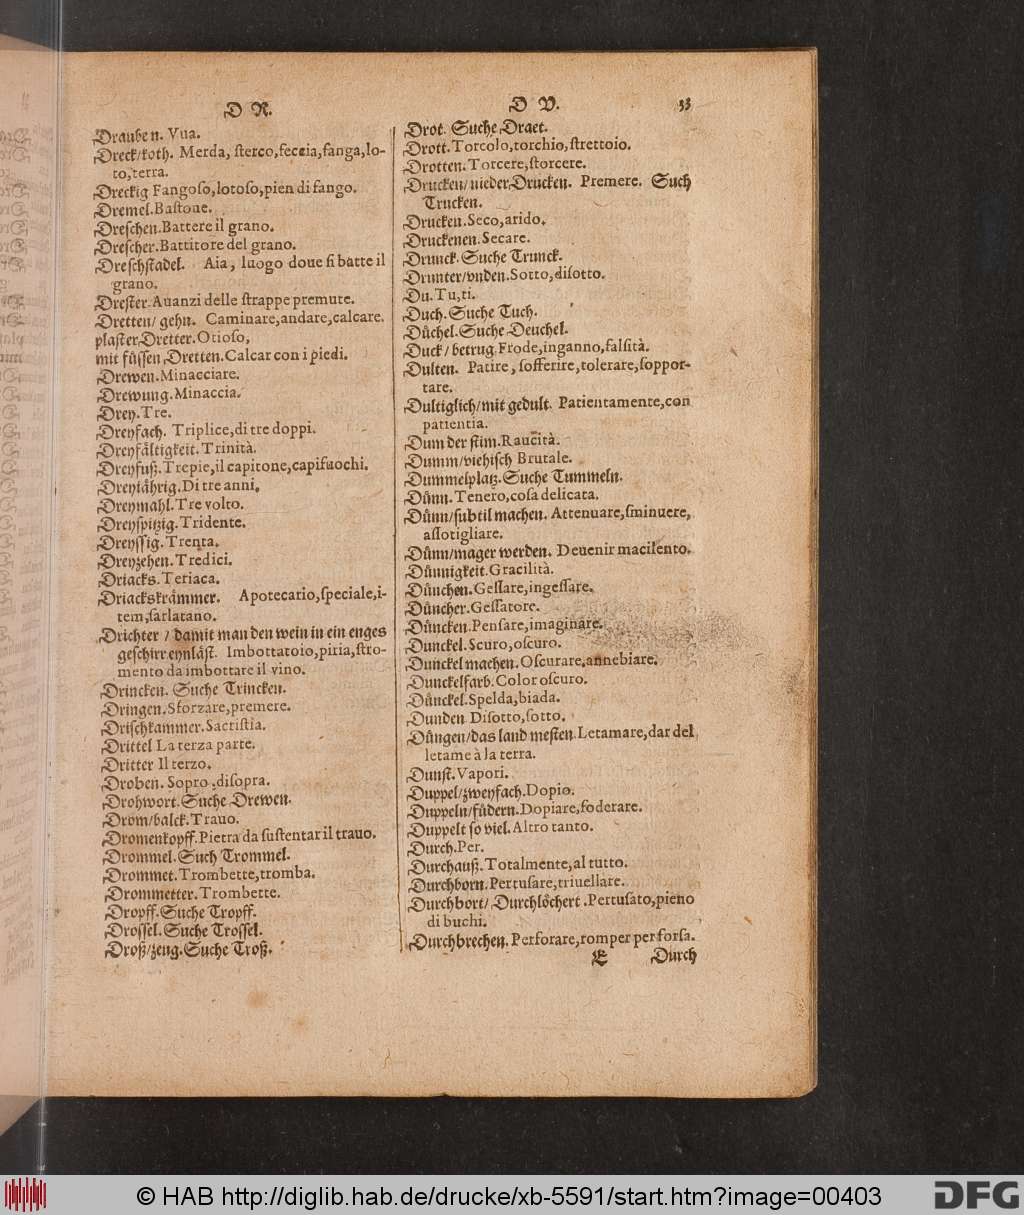 D R.
Drauben. Vua.
Dreck/koth. Merda, sterco, feccia, fanga, lo-
to, terra.
Dreckig Fangoso, lotoso, pien di fango.
Dremel. Bastone.
Dreschen. Battere il grano.
Drescher. Battitore del grano.
Dreschstadel. Aia, luogo doue si batte il
grano.
Drester. Auanzi delle strappe premute.
Dretten/ gehn. Caminare, andare, calcare.
plaster Dretter. Otioso,
mit füssen Dretten. Calcar con i piedi.
Drewen. Minacciare.
Drewung. Minaccia.
Drey. Tre.
Dreyfach. Triplice, di tre doppi.
Dreyfältigkeit. Trinità.
Dreyfuß. Trepie, il capitone, capifuochi.
Dreyjährig. Di tre anni.
Dreymahl. Tre volto.
Dreyspitzig. Tridente.
Dreyssig. Trenta.
Dreyzehen. Tredici.
Driacks. Teriaca.
Driackskrämmer. Apotecario, speciale, i-
tem, sarlatano.
Drichter / damit man den wein in ein enges
geschirr eynläst. Imbottatoio, piria, stro-
mento da imbottare il vino.
Drincken. Suche Trincken.
Dringen. Sforzare, premere.
Drischkammer. Sacristia.
Drittel La terza parte.
Dritter Il terzo.
Droben. Sopro, disopra.
Drohwort. Suche Drewen.
Drom/balck. Trauo.
Dromenkopff. Pietra da sustentar il trauo.
Drommel. Such Trommel.
Drommet. Trombette, tromba.
Drommetter. Trombette.
Dropff. Suche Tropff.
Drossel. Suche Trossel.
Droß/zeug. Suche Troß.
D V. 33
Drot. Suche Draet.
Drott. Torcolo, torchio, strettoio.
Drotten. Torcere, storcere.
Drucken/ nieder Drucken. Premere. Such
Trucken.
Drucken. Seco, arido.
Druckenen. Secare.
Drunck. Suche Trunck.
Drunter/vnden. Sotto, disotto.
Du. Tu, ti.
Duch. Suche Tuch.
Düchel. Suche Deuchel.
Duck / betrug. Frode, inganno, falsità.
Dulten. Patire, sofferire, tolerare, soppor-
tare.
Dultiglich/mit gedult. Patientamente, con
patientia.
Dum der stim. Raucità.
Dumm/viehisch Brutale.
Dummelplatz. Suche Tummeln.
Dünn. Tenero, cosa delicata.
Dünn/subtil machen. Attenuare, sminuere,
assotigliare.
Dünn/mager werden. Deuenir macilento.
Dünnigkeit. Gracilità.
Dünchen. Gessare, ingessare.
Düncher. Gessatore.
Düncken. Pensare, imaginare.
Dunckel. Scuro, oscuro.
Dunckel machen. Oscurare, annebiare.
Dunckelfarb. Color oscuro.
Dünckel. Spelda, biada.
Dunden Disotto, sotto.
Düngen/das land mesten. Letamare, dar del
letame à la terra.
Dunst. Vapori.
Duppel/zweyfach. Dopio.
Duppeln/füdern. Dopiare, foderare.
Duppelt so viel. Altro tanto.
Durch. Per.
Durchauß. Totalmente, al tutto.
Durchborn. Pertusare, triuellare.
Durchbort/ Durchlöchert. Pertusato, pieno
di buchi.
Durchbrechen. Perforare, romper per forsa.
E Durch
© HAB http://diglib.hab.de/drucke/xb-5591/start.htm?image=00403
DFG